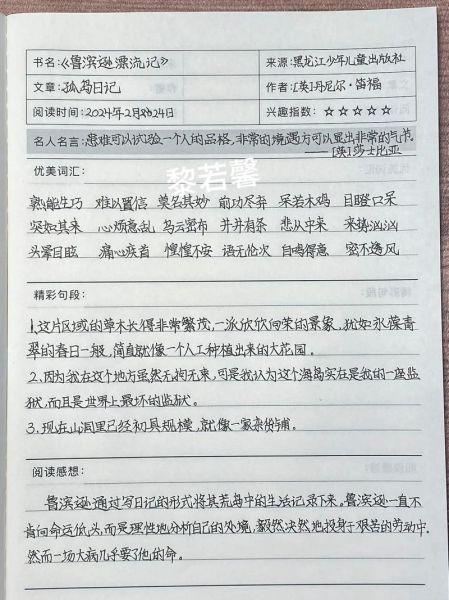 书名：《鲁滨逊漂流记》 来源：黑龙江少年儿童出版社
文章：孤岛日记 作者：[英]丹尼尔·笛福
阅读时间：2024年2月24日 兴趣指数：☆☆☆☆☆
名人名言：患难可以试验一个人的品格，非常的境遇方可以显出非常的气节。
——[英]莎士比亚
优美词汇：
黎若馨
熟能生巧 难以置信 莫名其妙 前功尽弃 呆若木鸡 目瞪口呆
突如其来 心烦意乱 乌云密布 井井有条 悲从中来 来势汹汹
头晕目眩 痛心疾首 惶惶不安 语无伦次 自鸣得意 密不透风
精彩句段：
1、这片区域的草木长得非常繁茂，一派欣欣向荣的景象，犹如永葆青
翠的春日一般，简直就像一个人工种植出来的大花园。
2、因为我在这个地方虽然无拘无束，可是我认为这个海岛实在是我的一座监
狱，而且是世界上最坏的监狱。
3、现在山洞里已经初具规模，就像一家杂货铺。
阅读感想：
鲁滨逊通过写日记的形式将其荒岛中的生活记录下来。鲁滨逊一直不
肯向命运低头，而是理性地分析自己的处境，毅然决然地投身于艰苦的劳动中，
然而一场大病几乎要了他的命。